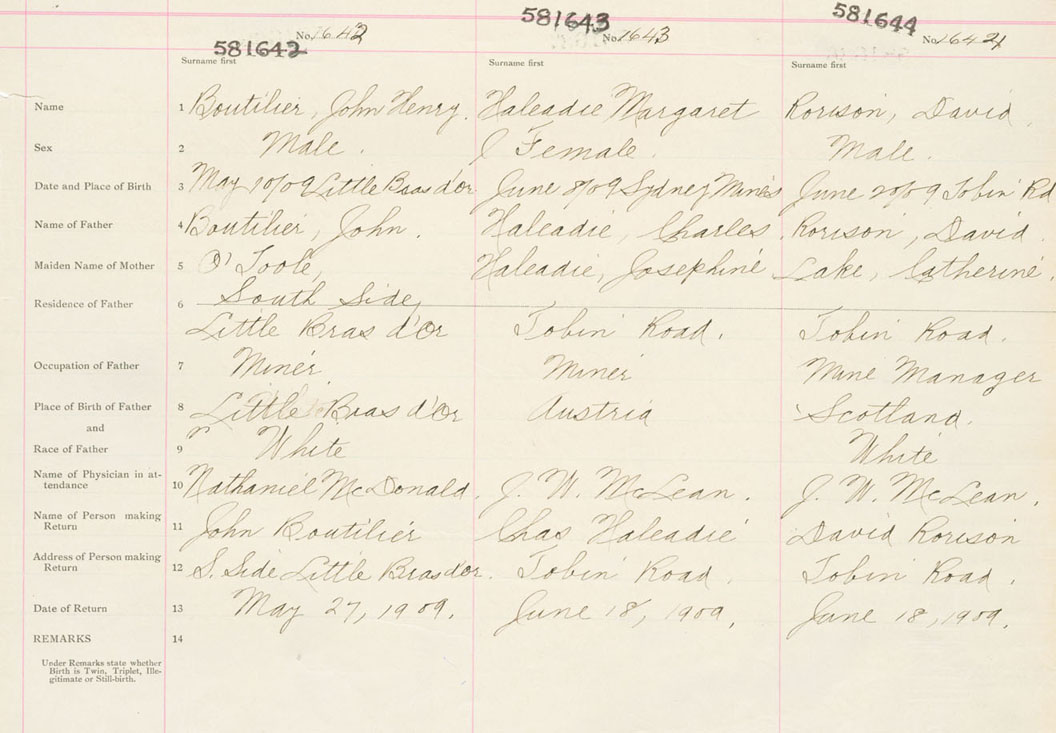 581642 No. 1642 581643 No. 1643 581644 No. 1644
Surname first Surname first Surname first
Name 1 Boutilier, John Henry. Haleadie Margaret Rorison, David.
Sex 2 Male. Female. Male.
Date and Place of Birth 3 May 10/09 Little Bras d'or June 8/09 Sydney Mines June 2/09 Tobin Rd
Name of Father 4 Boutilier, John. Haleadie, Charles. Rorison, David.
Maiden Name of Mother 5 O'Toole, Haleadie, Josephine Lake, Catherine
Residence of Father 6 South Side,
Little Bras d'Or Tobin Road. Tobin Road.
Occupation of Father 7 Miner Miner Mine Manager
Place of Birth of Father 8 Little Bras d'Or Austria Scotland.
and
Race of Father 9 White White
Name of Physician in at-
tendance 10 Nathaniel McDonald. J. W. McLean. J. W. McLean.
Name of Person making
Return 11 John Boutilier Chas Haleadie David Rorison
Address of Person making
Return 12 S. Side Little Bras d'or. Tobin Road. Tobin Road.
Date of Return 13 May 27, 1909. June 18, 1909. June 18, 1909.
REMARKS 14
Under Remarks state whether
Birth is Twin, Triplet, Ille-
gitimate or Still-birth.